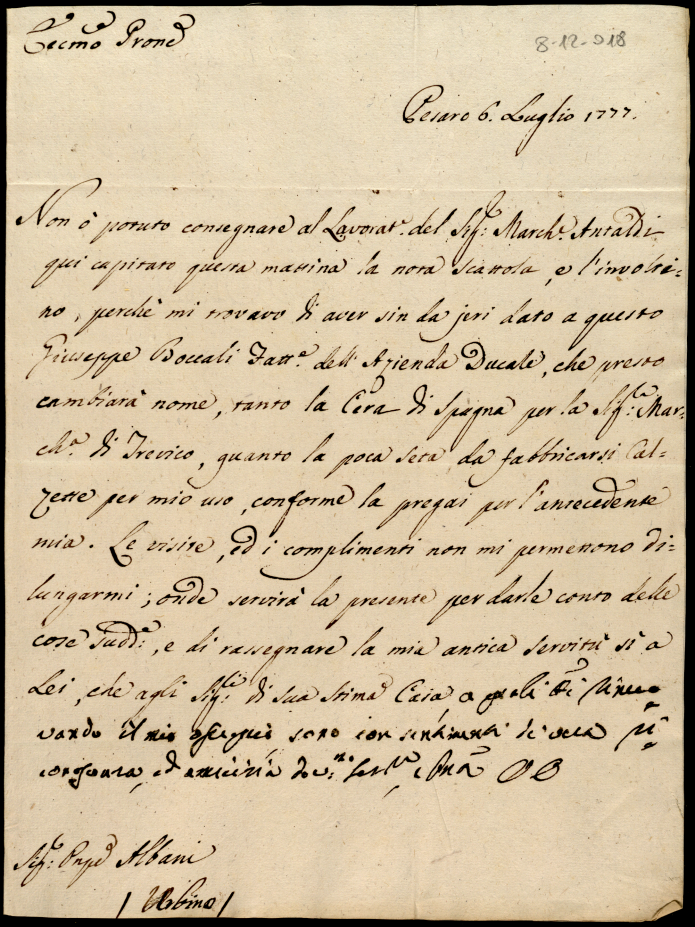 Eccmo Prone
8-12-918
Pesaro 6. Luglio 1777.
Non ò potuto consegnare al Lavorat.e del Sig.r March.e Antaldi
qui capitato questa mattina la nota scattola, e l'involti=
no, perchè mi trovavo di aver sin da jeri dato a questo
Giuseppe Boccali Fatt.e dell'Azienda Ducale, che presto
cambiarà nome, tanto la Cera di Spagna per la Sig.ra Mar=
ch.a di Trevico, quanto la poca seta da fabbricarsi Cal=
zette per mio uso, conforme la pregai per l'antecedente
mia. Le visite, ed i complimenti non mi permettono di=
lungarmi; onde servirà la presente per darle conto delle
cose sudd.e, e di rassegnare la mia antica servitù sì a
Lei, che agli Sig.ri di sua stima Casa a quali
vando il mio ossequio sono con sentimenti di vera
ed amicizia
Sig.r Albani
/ Urbino /